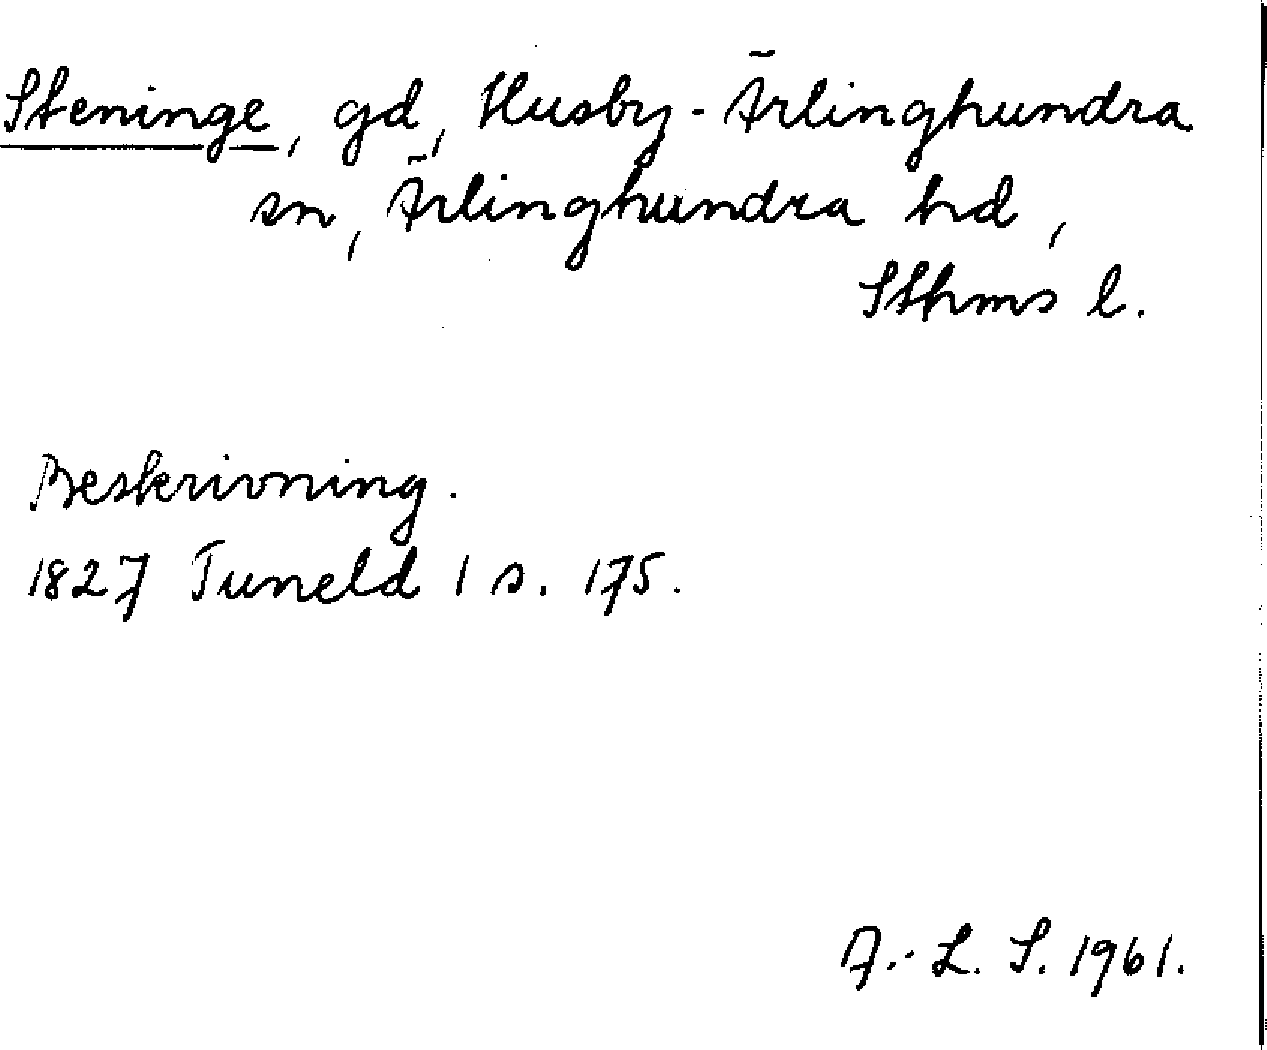 Steninge, gd, Husby-Ärlinghundra
sn, Ärlinghundra hd,
Sthms l.
Beskrivning.
1827 Tuneld I s. 175.
A.-L. S. 1961.